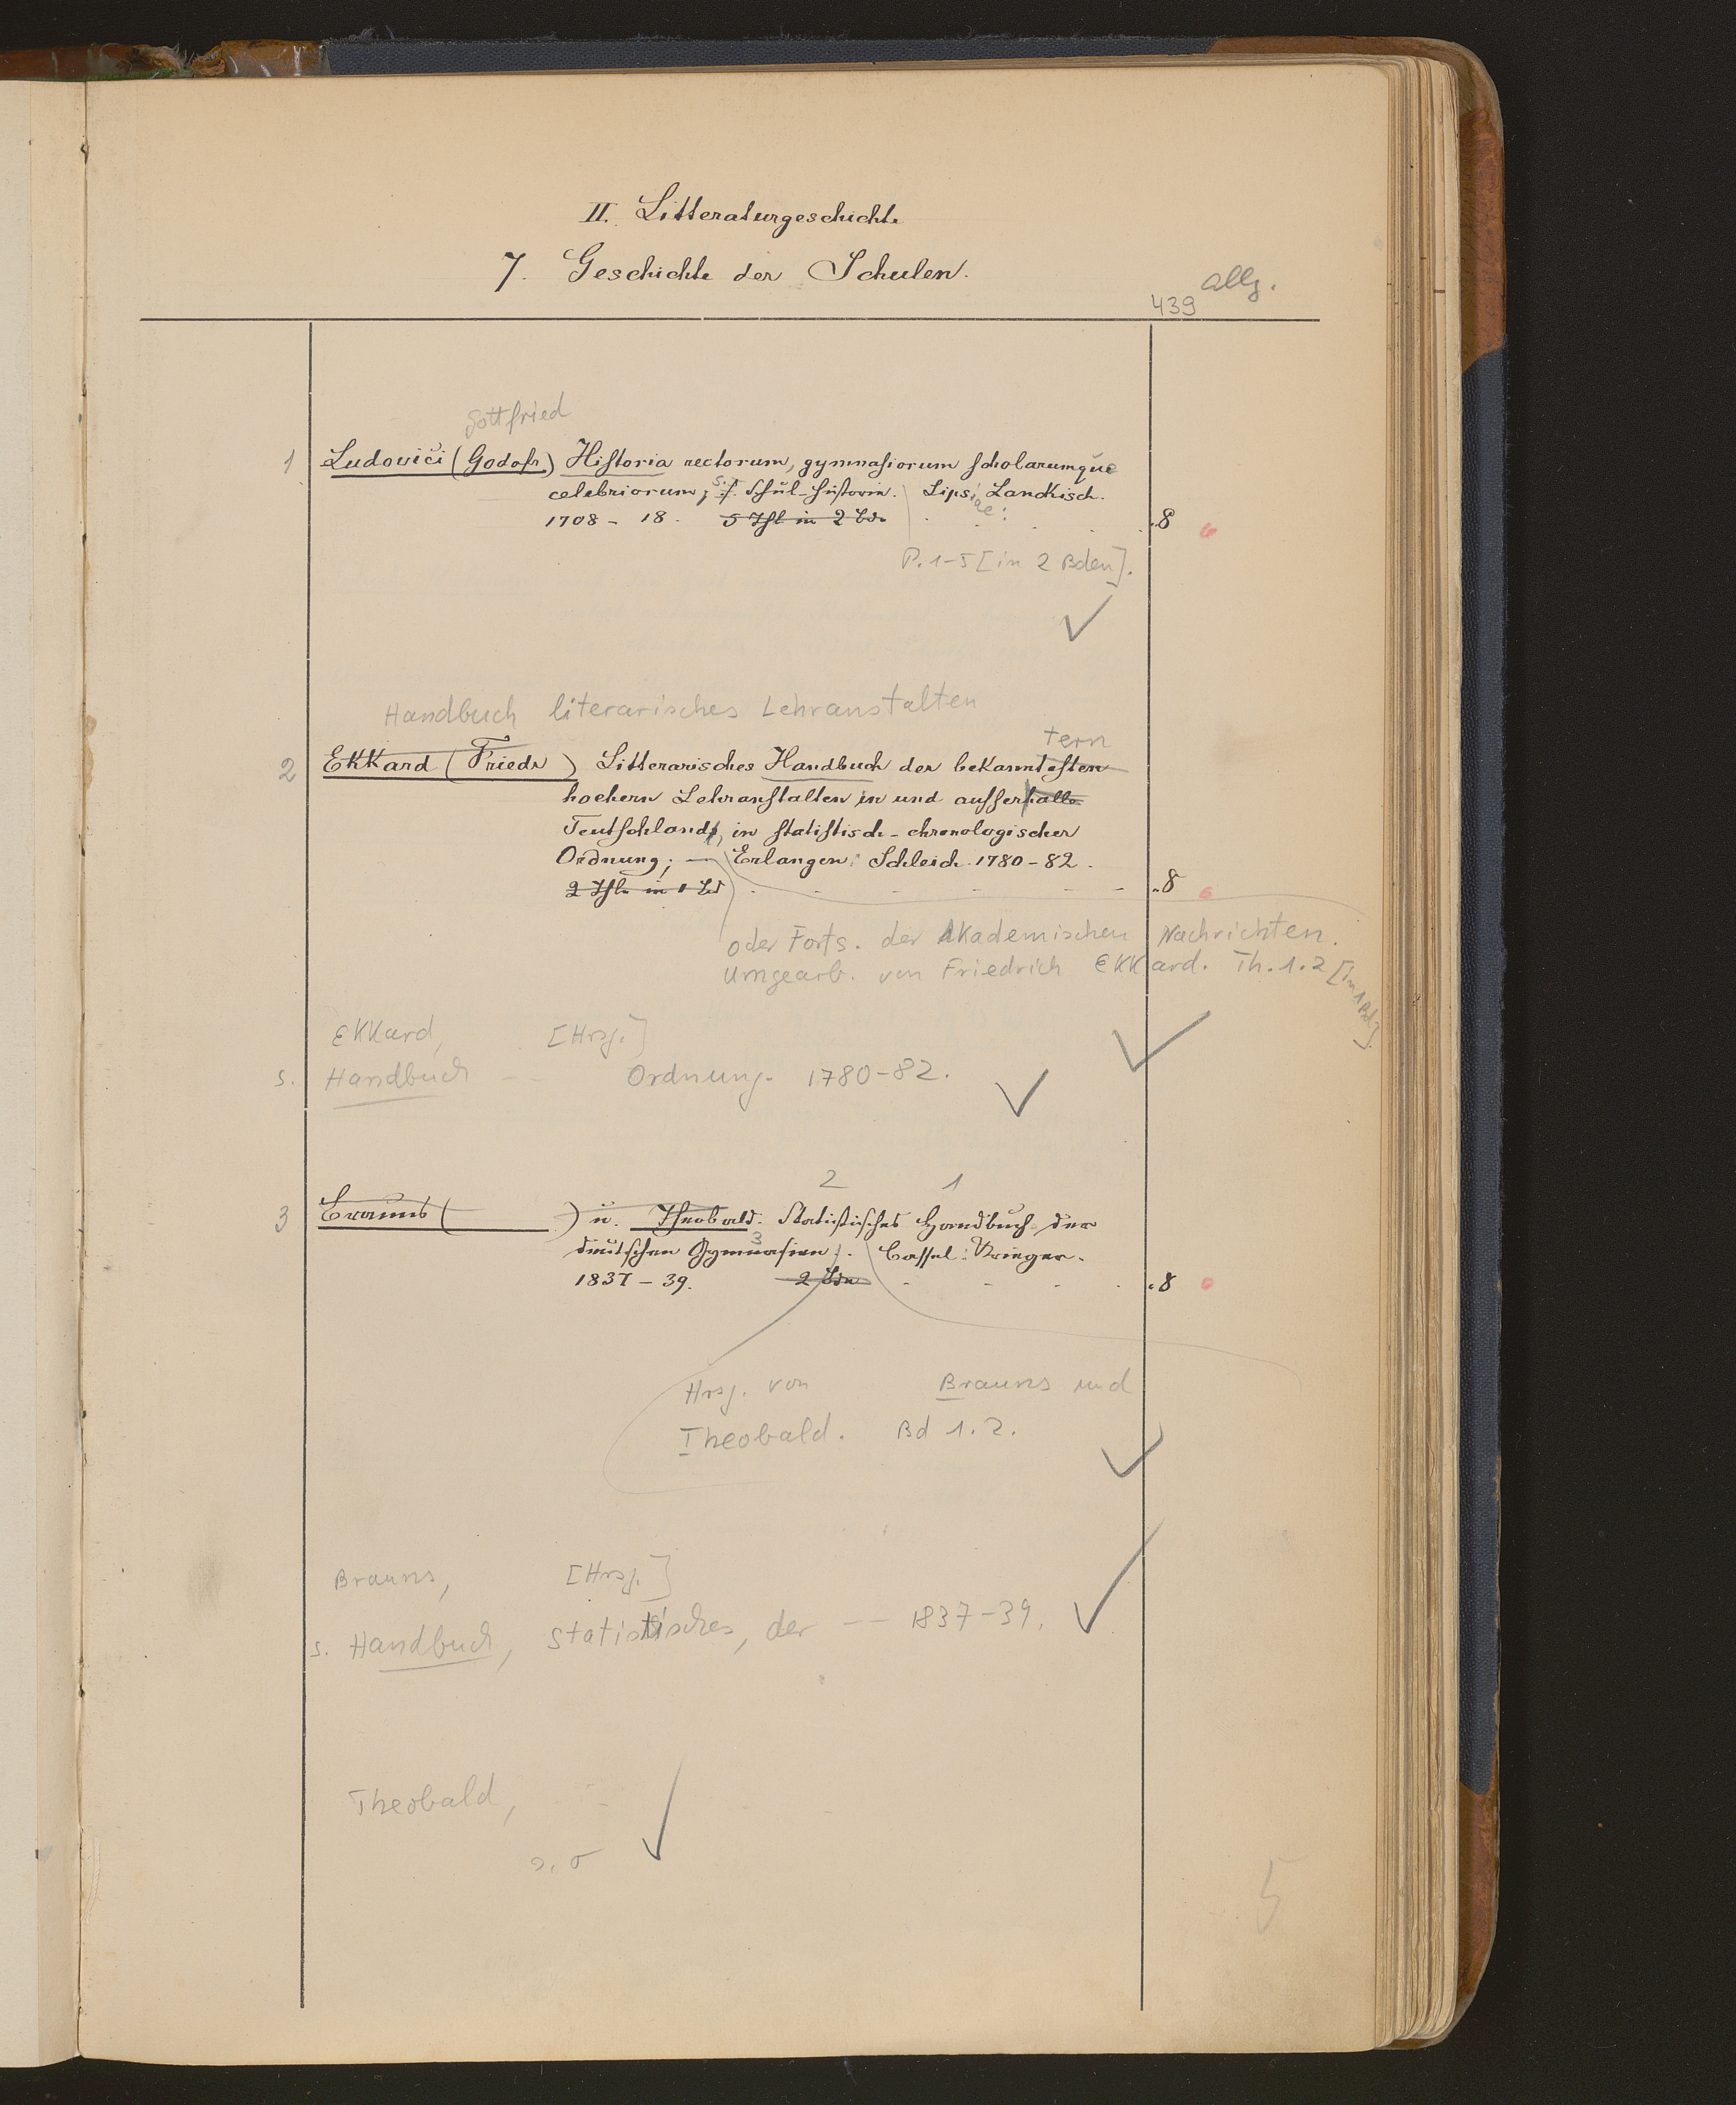 II. Litteraturgeschichte
7. Geschichte der Schulen.
allg.
439
Gottfried
1 Ludovici (Godofr.) Historia rectorum, gymnasiorum scholarumque
celebriorum, s. Schul-Historie. Lipsiae: Lankisch.
1708 - 18. 5 Thl in 2 Bde 8
P. 1-5 [in 2 Bden].
Handbuch literarisches Lehranstalten
tern
2 Ekkard (Friedr) Litterarisches Handbuch der bekanntesten
hoehern Lehranstalten in und ausserhalb
Teutschlands, in statistisch-chronologischer
Ordnung; — Erlangen: Schleich. 1780-82.
2 Thle in 1 Bd 8
oder Forts. der Akademischen Nachrichten.
umgearb. von Friedrich Ekkard. Th. 1.2 [in 1 Bd].
Ekkard, [Hrsg.]
s. Handbuch -- Ordnung. 1780-82.
2 1
3 Brauns ( ) u. Theobald. Statistisches Handbuch der
3
deutschen Gymnasien. Cassel: Krieger.
1837 - 39. 2 Bde 8
Hrsg. von Brauns und
Theobald. Bd 1.2.
Brauns, [Hrsg.]
s. Handbuch, statistisches, der -- 1837-39.
Theobald,
5